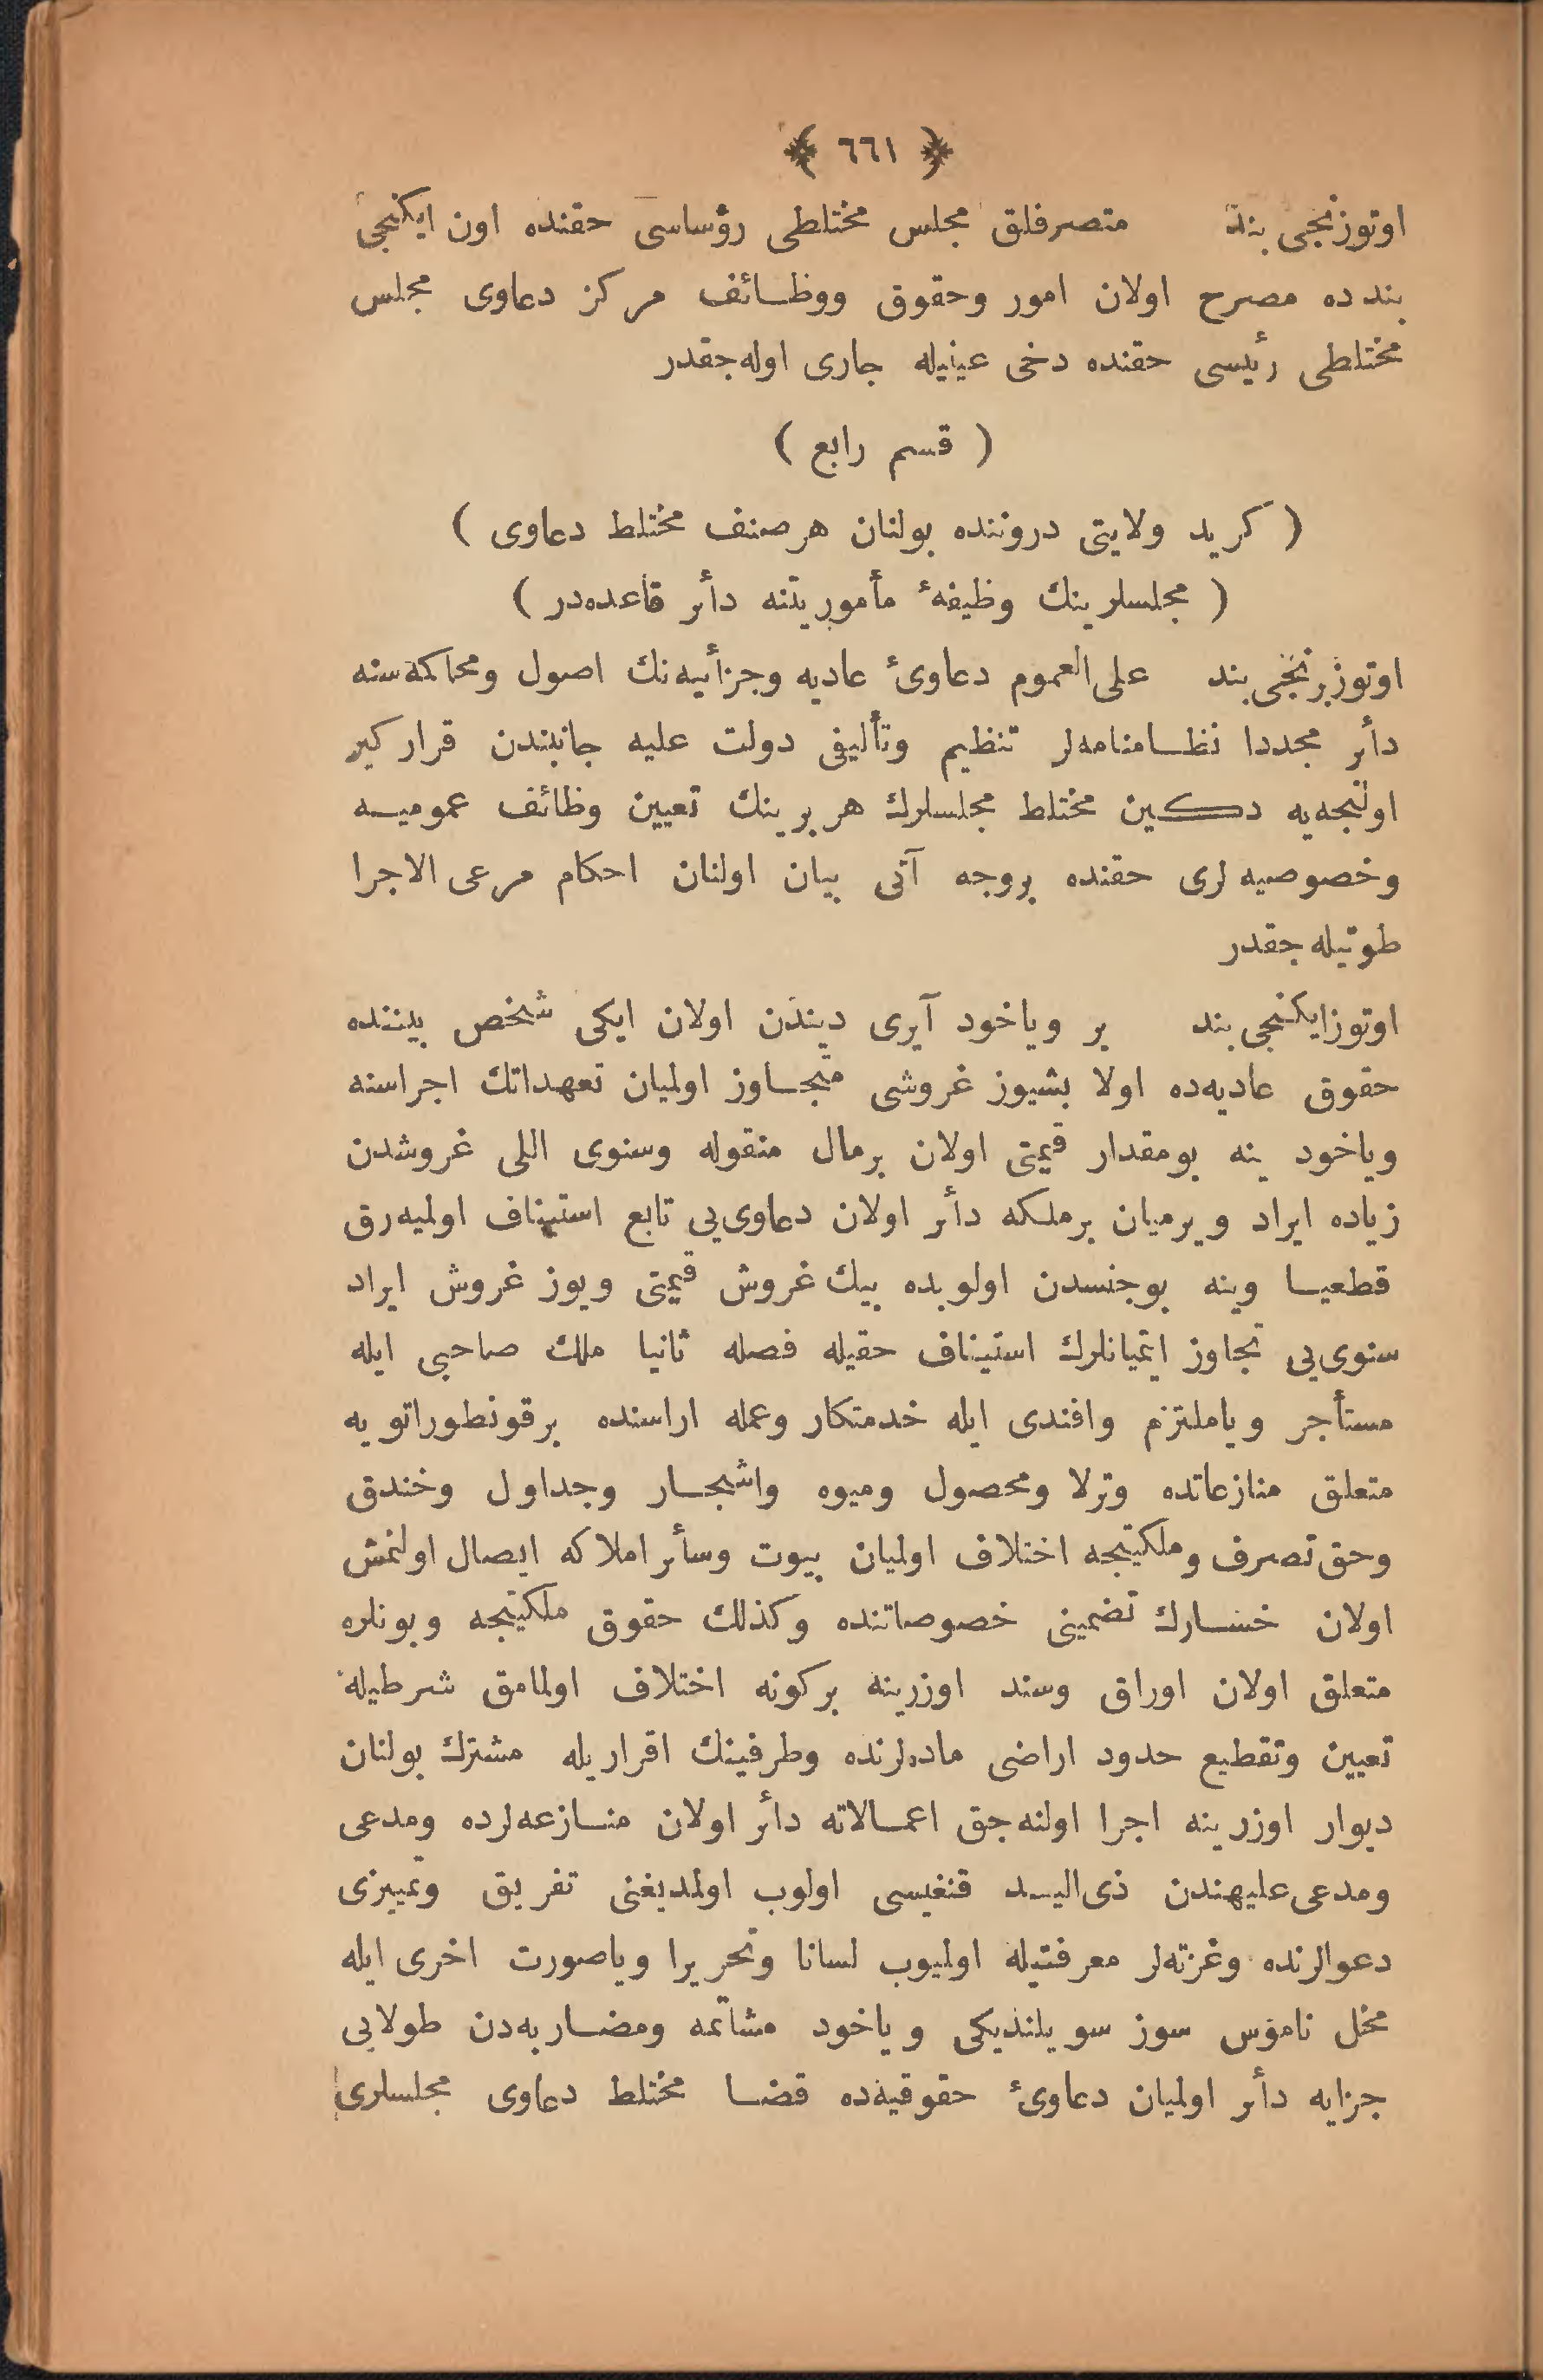 ﴿ ٦٦١ ﴾
اوتوزنجی بند متصرفلق مجلس مختلطی رؤساسی حقنده اون ایکنجی
بندده مصرح اولان امور وحقوق ووظـائف مرکز دعاوی مجلس
مختلطی رئیسی حقنده دخی عینیله جاری اوله‌جقدر
( قسم رابع )
( کرید ولایتی دروننده بولنان هرصنف مختلط دعاوی )
( مجلسلرینك وظیفۀ مأموریتنه دأر قاعده‌در )
اوتوزبرنجی بند علی‌العموم دعاویٔ عادیه وجزائیه‌نك اصول ومحاکمه‌سنه
دأر مجددا نظـامنامه‌لر تنظیم وتألیفی دولت علیه جانبندن قرارکیر
اولنجه‌یه دکین مختلط مجلسلرك هربرینك تعیین وظائف عمومیـه
وخصوصیه‌لری حقنده بروجه آتی بیان اولنان احکام مرعی الاجرا
طوتیله‌جقدر
اوتوزایکنجی بند بر ویاخود آیری دیندن اولان ایکی شخص بیننده
حقوق عادیه‌ده اولا بشیوز غروشی متجـاوز اولمیان تعهداتك اجراسنه
ویاخود ینه بومقدار قیمتی اولان برمال منقوله وسنوی اللی غروشدن
زیاده ایراد ویرمیان برملکه دأر اولان دعاوی‌یی تابع استیناف اولمیه‌رق
قطعیـا وینه بوجنسدن اولوبده بیك غروش قیمتی ویوز غروش ایراد
سنوی‌یی تجاوز ایتمیانلرك استیناف حقیله فصله ثانیا ملك صاحبی ایله
مستأجر ویاملتزم وافندی ایله خدمتکار وعمله اراسنده برقونطوراتویه
متعلق منازعاتده وترلا ومحصول ومیوه واشجـار وجداول وخندق
وحق تصرف وملکیتجه اختلاف اولمیان بیوت وسأر املاکه ایصال اولنمش
اولان خسـارك تضمینی خصوصاتنده وکذلك حقوق ملکیتجه وبونلره
متعلق اولان اوراق وسند اوزرینه برکونه اختلاف اولمامق شرطیله
تعیین وتقطیع حدود اراضی ماده‌لرنده وطرفینك اقراریله مشترك بولنان
دیوار اوزرینه اجرا اولنه‌جق اعمـالاته دأر اولان منـازعه‌لرده ومدعی
ومدعی علیهندن ذی‌الیـد قنغیسی اولوب اولمدیغنی تفریق وتمییزی
دعوالرنده وغزته‌لر معرفتیله اولمیوب لسانا وتحریرا ویاصورت اخری ایله
مخل ناموس سوز سویلندیکی ویاخود مشاتمه ومضـاربه‌دن طولایی
جزایه دأر اولمیان دعاویٔ حقوقیه‌ده قضـا مختلط دعاوی مجلسلری